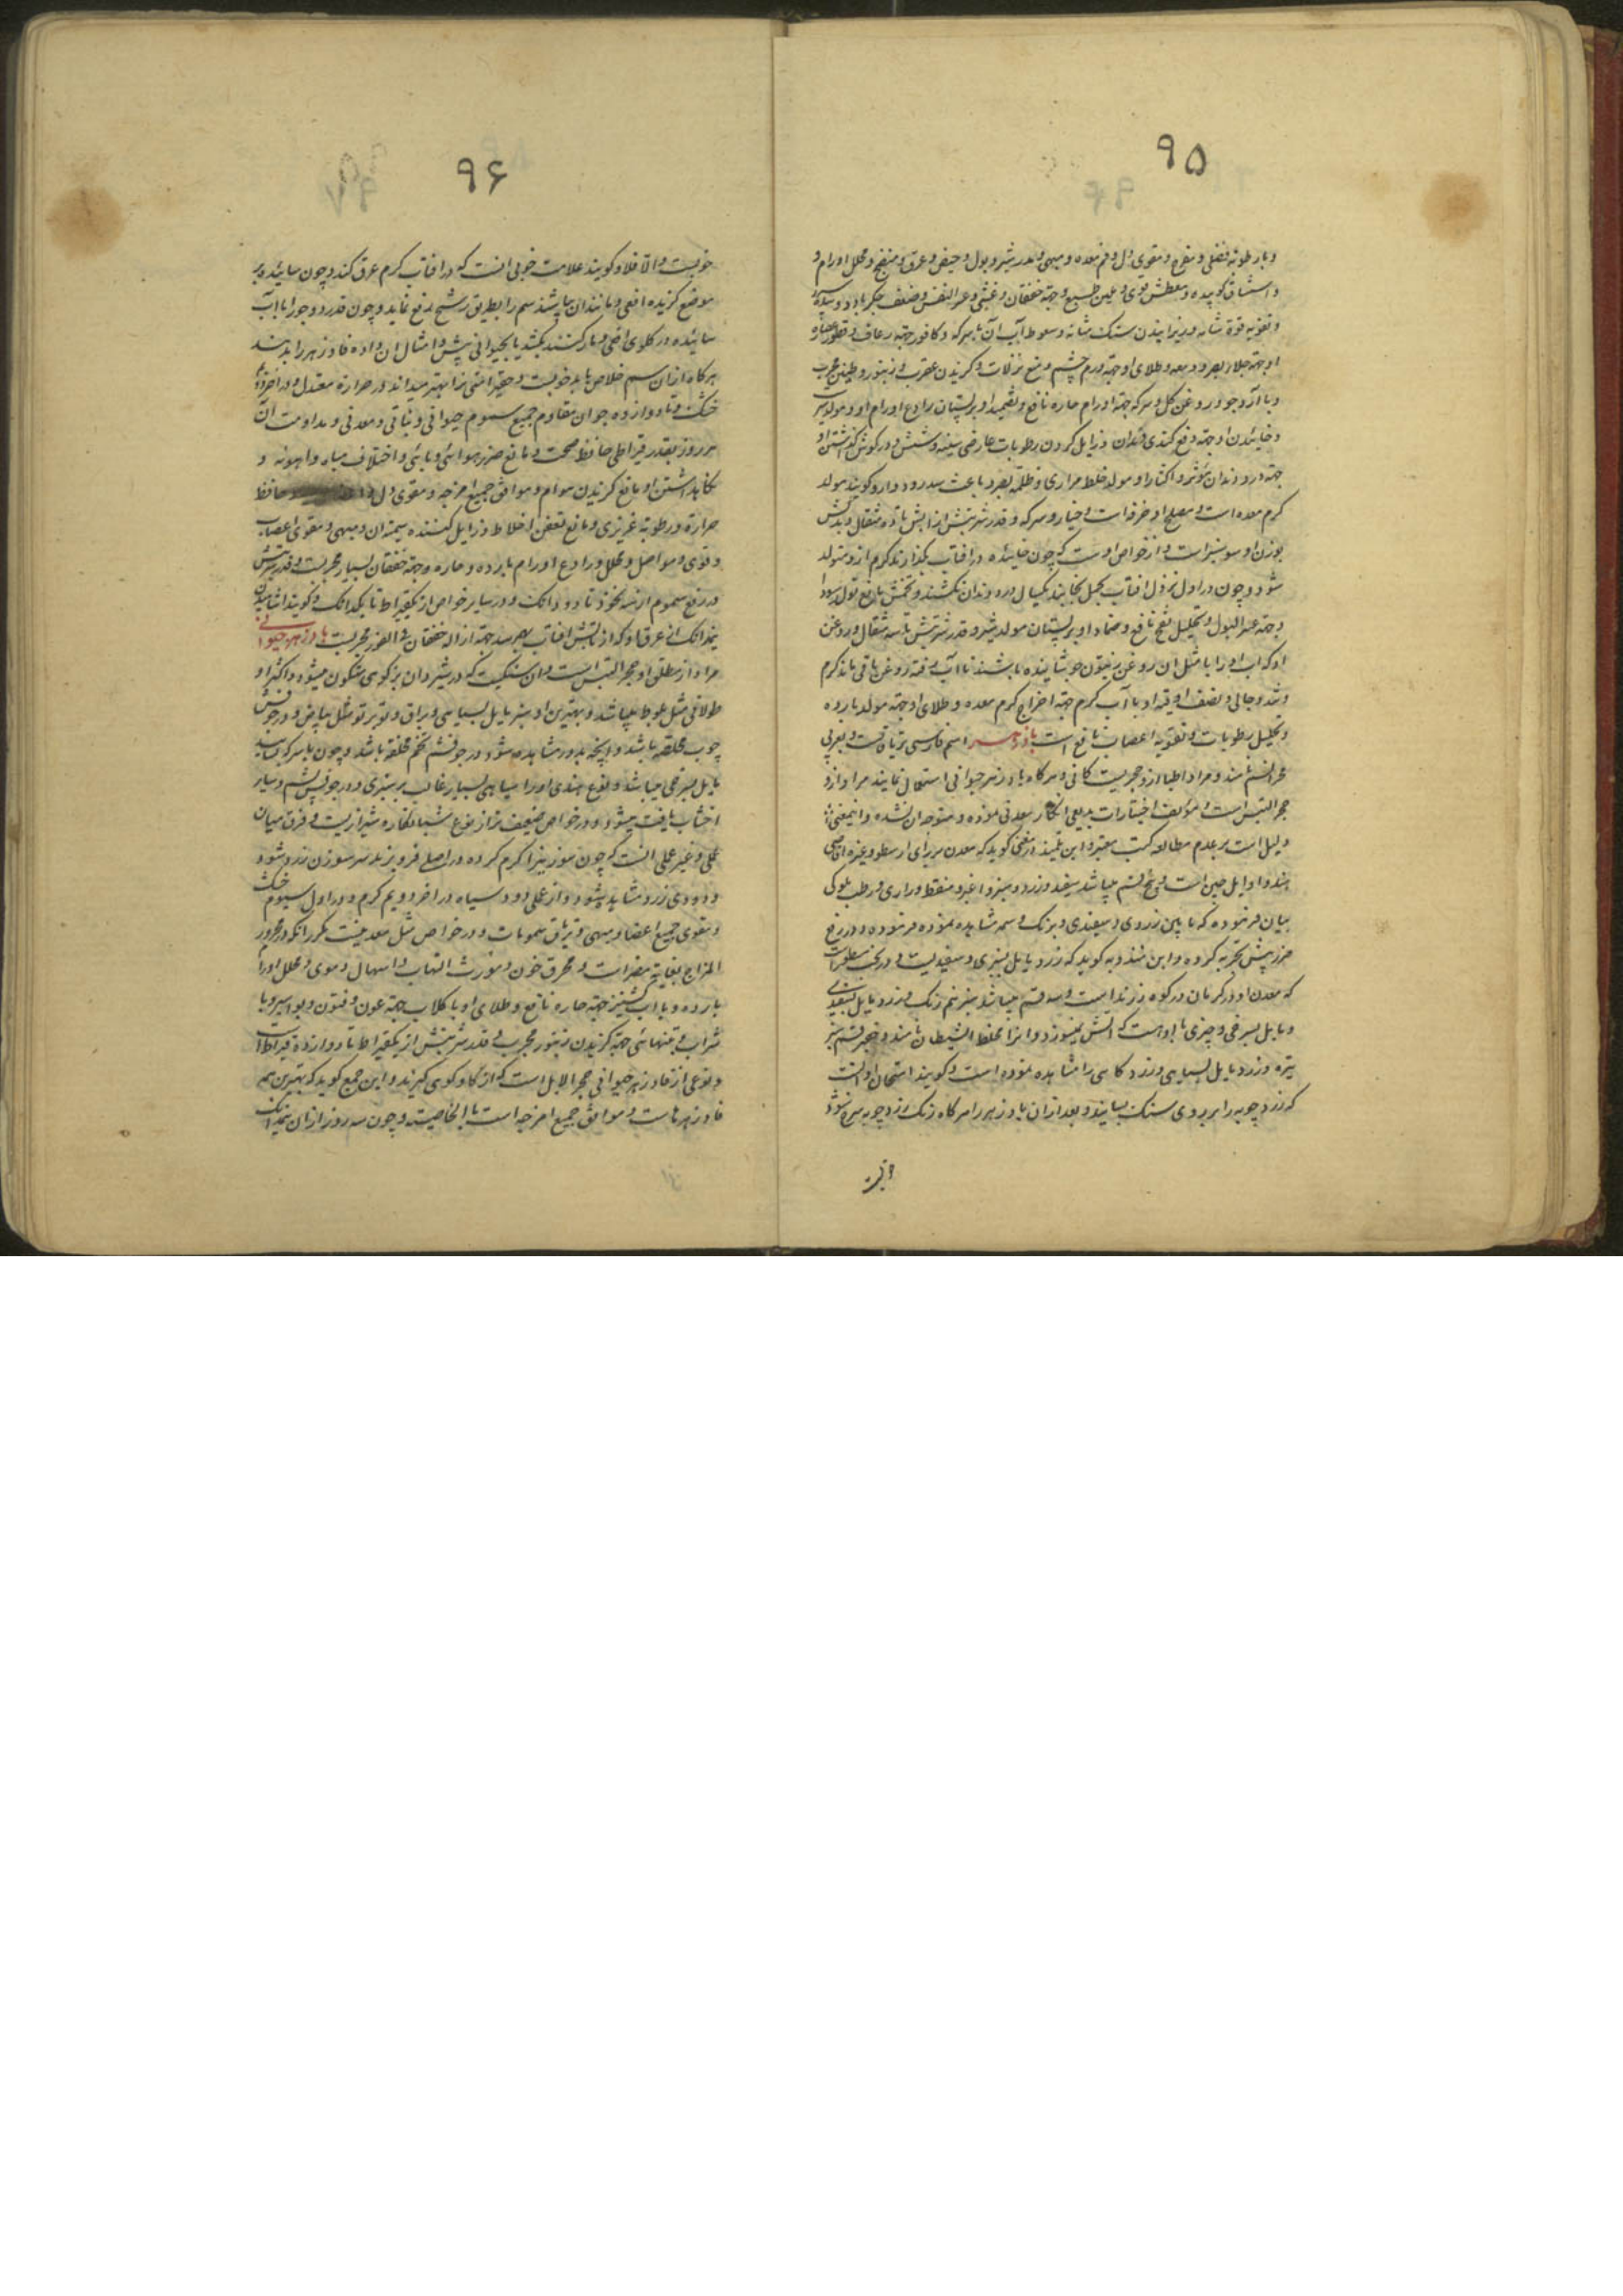 ۹۵
و با رطوبة فضلی و مفرح و مقوی دل و فم معده و مبهی و مدر شیر و بول و حیض و عرق و منضج و محلل اورام و
و استنشاق کوبیده و معطش قوی و ملین طبع و جهة خفقان و غشی و عسر النفس و ضعف جکر بارد و سپرز
و تقویة قوة شامه و ریزانیدن سنک مثانه و سعوط آب آن با سرکه و کافور جهة رعاف و قطور عصاره
او جهة جلاء بصر و دمعه و طلای او جهة ورم چشم و منع نزلات و کزیدن عقرب و زنبور و طنین مجرب
و با آرد جو و روغن کل و سرکه جهة اورام حاره نافع و تضمید او بر پستان رادع اورام او و مولد شیر
و خائیدن او جهة دفع کندی دندان و زایل کردن رطوبات عارضی سینه و شش و در کوش کذاشتن او
جهة درد دندان مؤثر و اکثار او مولد خلط مراری و ظلمة بصر و باعث سدر و دوار و کویند مولد
کرم معده است و مصلح او خرفه است و خیار و سرکه و قدر شربتش از آبش تا ده مثقال و بدلش
بوزن او سوسنبر است و از خواص اوست که چون خائیده در افتاب بکذارند کرم ازو متولد
شود و چون در اول نزول افتاب بحمل بخایند یکسال درد دندان نکشند و تخمش نافع تولد سودا
و جهة عسر البول و تحلیل نفخ نافع و ضماد او بر پستان مولد شیر و قدر شربتش تا سه مثقال و روغن
او که اب او را با مثل آن روغن زیتون جوشانیده باشند تا آب رفته روغن باقی ماند کرم
و تند و جالی و نصف اوقیه او با آب کرم جهة اخراج کرم معده و طلای او جهة مولد بارده
و تحلیل رطوبات و تقویة اعصاب نافع است بادزهر اسم فارسی تریاقست و بعربی
حجر السم نامند و مراد اطبا ازو حجریست کانی و هرکاه بادزهر حیوانی استعمال نمایند مراد ازو
حجر التیس است و مؤلف اختیارات بدیعی انکار معدنی نموده و متوجه ان نشده و اینمعنی
دلیل است بر عدم مطالعه کتب معتبره ابن تلمیذ از مغنی کوید که معدن سررای ارسطو و غیره اقاصی
هند و اوایل چین است و پنج قسم میباشد سفید و زرد و سبز و اغبر و منقط و رازی در طب ملوکی
بیان فرموده که ما بین زردی و سفیدی و برنک وسمه مشاهده نموده فرموده و در رفع
ضرر بیش تجربه کرده و ابن مندویه کوید که زرد مایل بسبزی و سفیدیست و در
که معدن او در کرمان در کوه زرند است و سه قسم میباشد سبز نیم رنک و زرد مایل بسفیدی
و مایل بسرخی و چیزی با اوست که آتش نمیسوزد و انرا مخاط الشیطان نامند و
تیره و زرد مایل بسیاهی و زرد کاسی را مشاهده نموده است و کویند امتحان او آنست
که زردچوبه را بر روی سنک بسایند و بعد از ان بادزهر را هرکاه رنک زردچوبه سرخ شود

۹۶
خوبست و الا فلا و کویند علامت خوبی انست که در افتاب کرم عرق کند و چون سائیده بر
موضع کزیده افعی و مانند ان بپاشند سم را بطریق رشح دفع نماید و چون قدر دو جو را با آب
سائیده در کلوی افعی و مار کنند بکشد یا بحیوانی بیش و امثال ان داده فادزهر را بدهند
هرکاه از ان سم خلاص یابد خوبست و حقیر امتحانی را بهتر میداند در حرارة معتدل و در اخر دوم
خشک و تا دوازده جو ان مقاوم جمیع سموم حیوانی و نباتی و معدنی و مداومت ان
هر روز بقدر قیراطی حافظ صحت و مانع ضرر هوائی وبائی و اختلاف میاه و اهویه و
نکاهداشتن او مانع کزیدن هوام و موافق جمیع امزجه و مقوی دل و حافظ
حرارة و رطوبة غریزی و مانع تعفن اخلاط و زایل کننده سمیة ان و مبهی و مقوی اعصاب
و قوی و مواصل و محلل و رادع اورام بارده و حاره و جهة خفقان بسیار مجربست و قدر شربتش
در رفع سموم از سه نخود تا دو دانک و در سایر خواص از یکقیراط تا یکدانک و کویند اشامیدن
نیمدانک از عرق او که از تابش افتاب بهم رسد جهة ازاله خفقان فی الفور مجربست بادزهر حیوانی
مراد از مطلق او حجر التیس است و ان سنکیست که در شیردان بز کوهی متکون میشود و اکثر او
طولانی مثل بلوط میباشد و بهترین او سبز مایل بسیاهی و براق و تو بر تو مثل پیاز و در جوفش
چوب مخلصه باشد و انچه مدور مشاهده شود در جوفش تخم مخلصه باشد و چون با سرکه بسایند
مایل بسرخی میباشد و نوع هندی او را سیاهی بسیار غالب بر سبزی و در جوفش پشم و سایر
اخشاب یافت میشود و در خواص ضعیف تر از نوع شبانکاره شیرازیست و فرق میان
عملی و غیر عملی انست که چون سوزنی را کرم کرده در اصلی فرو برند سر سوزن زرد شود و
و دودی زرد مشاهده شود و از عملی دود سیاه در اخر دویم کرم و در اول سیوم خشک
و مقوی جمیع اعضا و مبهی و تریاق سمومات و در خواص مثل معدنیست مکر انکه در محرور
المزاج بغایة مضر است و محرق خون و مورث التهاب و اسهال دموی و محلل اورام
بارده و با اب کشنیز جهة حاره نافع و طلای او با کلاب جهة طاعون و فتون و بواسیر و با
شراب و بتنهائی جهة کزیدن زنبور مجرب و قدر شربتش از یکقیراط تا دوازده قیراط است
و نوعی از فادزهر حیوانی حجر الایل است که از کاو کوهی کیرند و ابن جمیع کوید که بهترین همه
فادزهرهاست و موافق جمیع امزجه است بالخاصیته و چون سه روز از ان نیمدانک